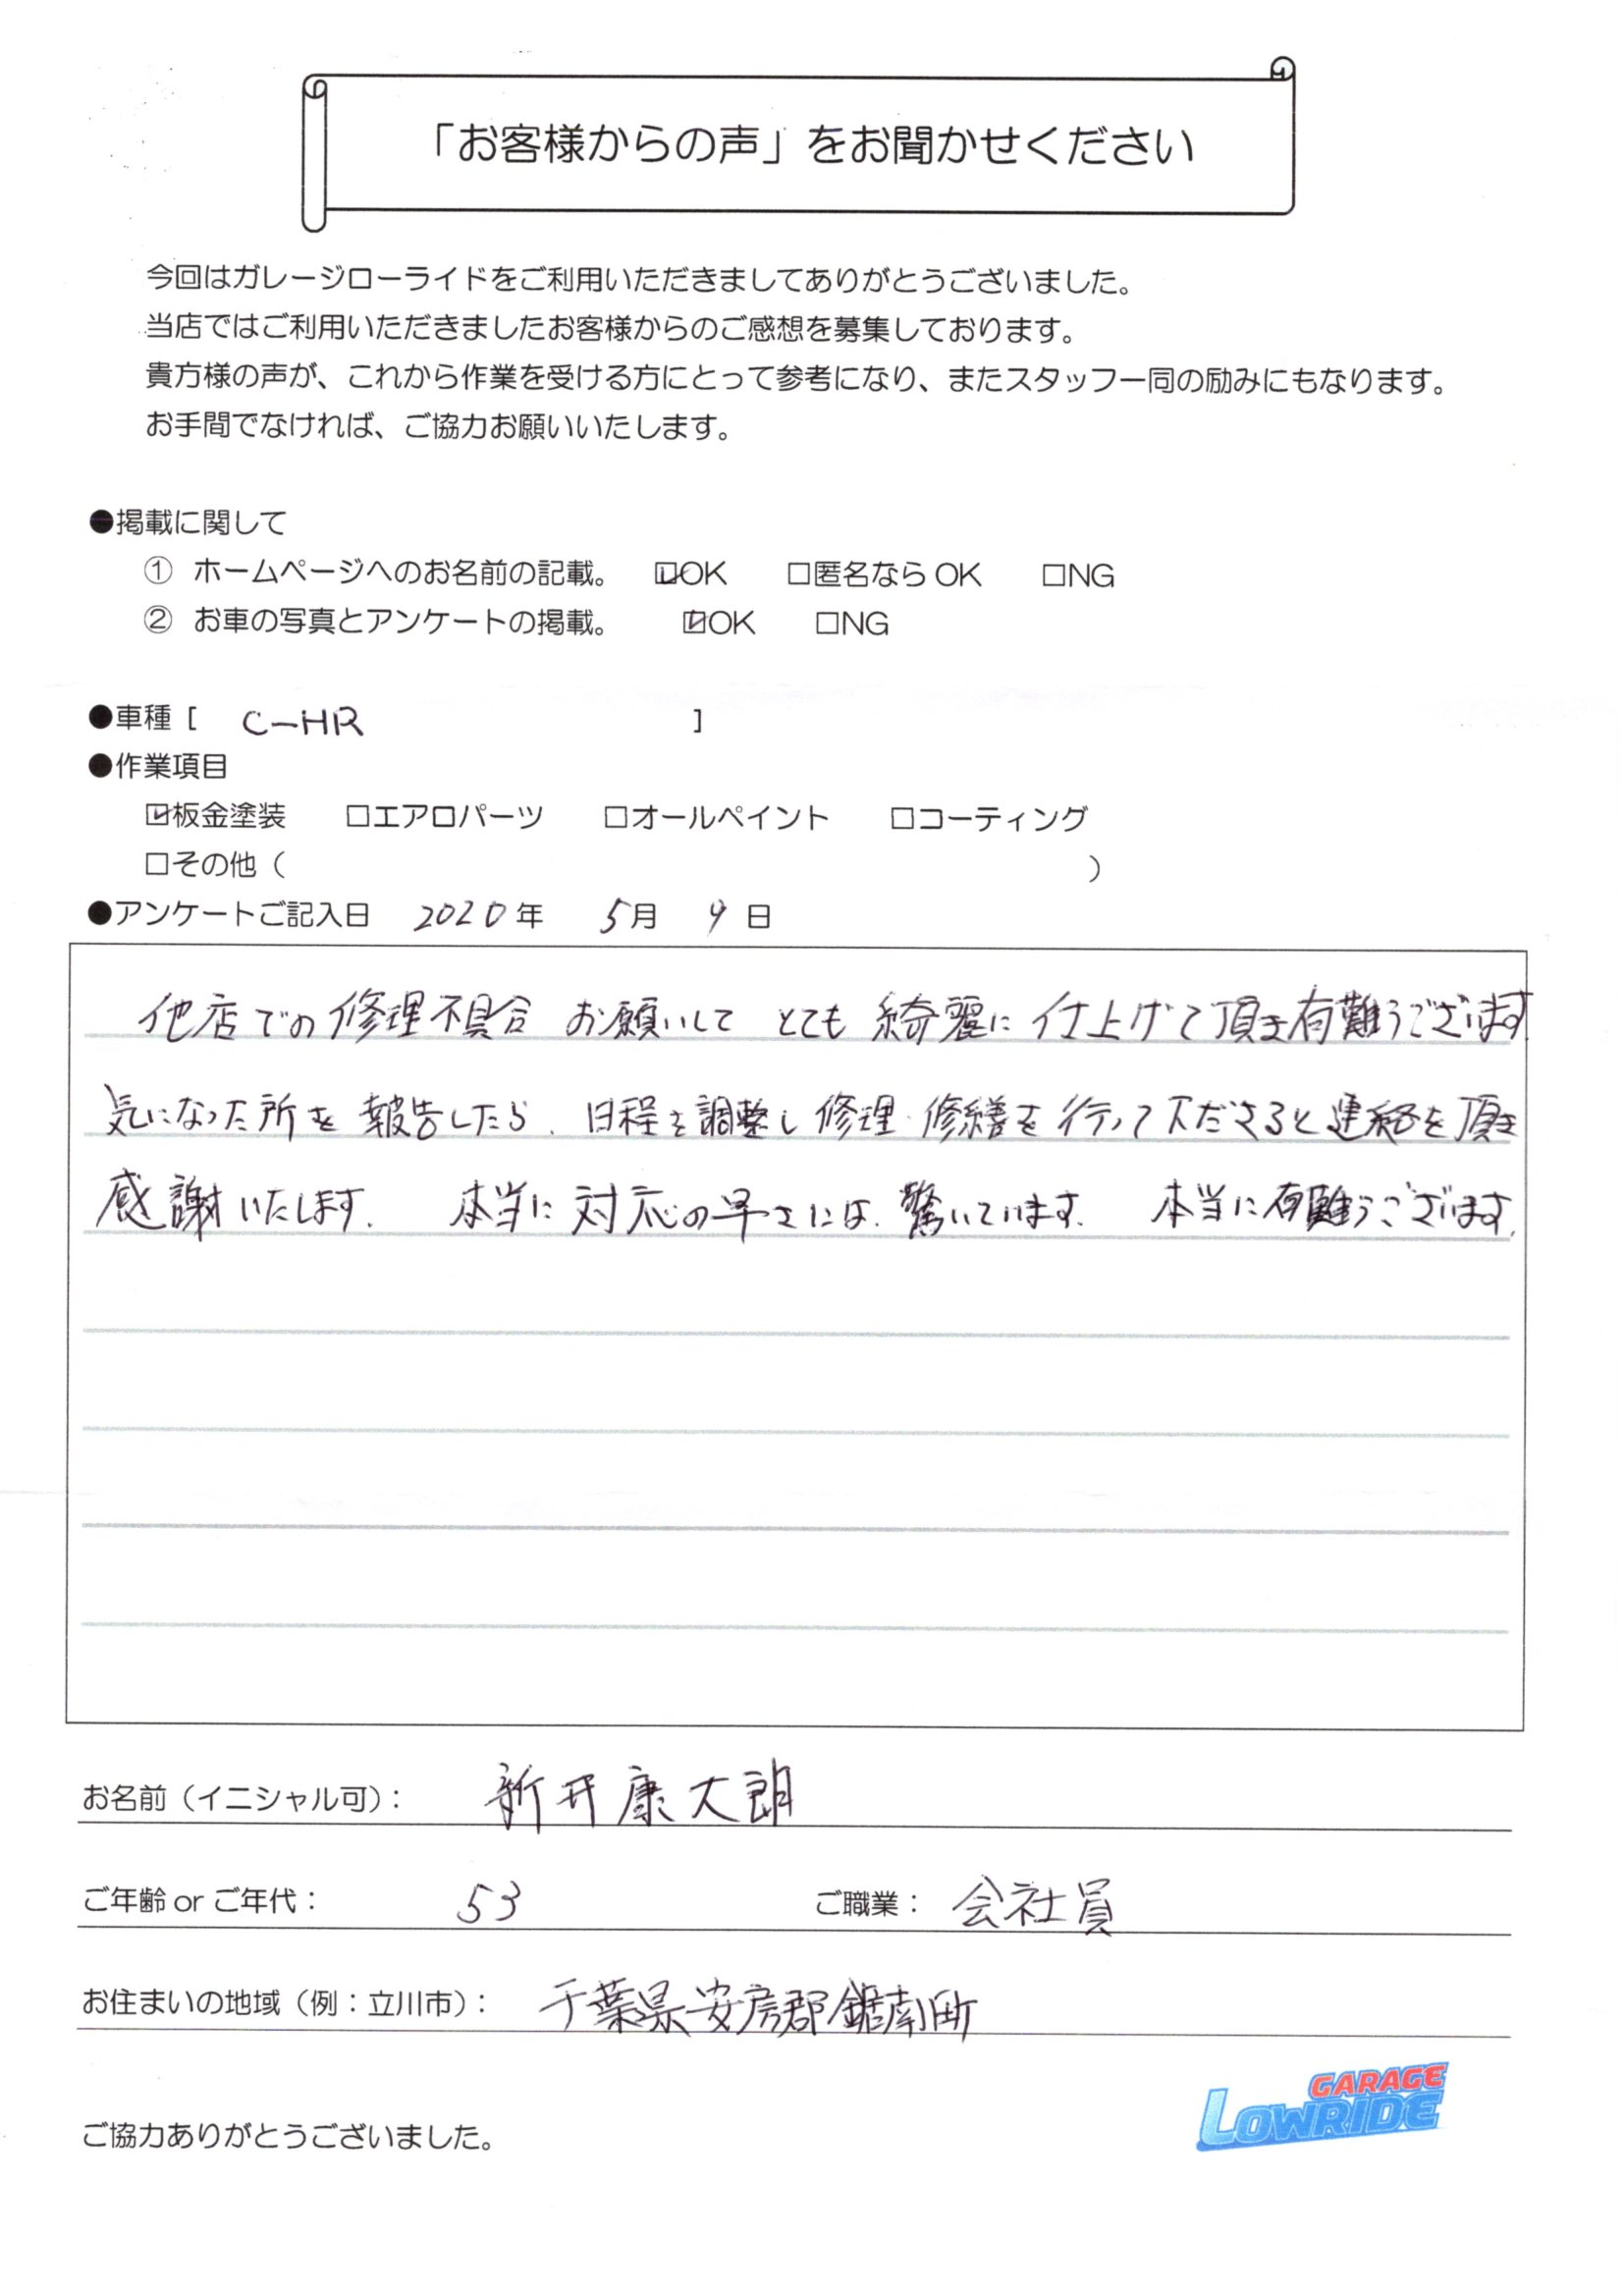 「お客様からの声」をお聞かせください
今回はガレージローライドをご利用いただきましてありがとうございました。
当店ではご利用いただきましたお客様からのご感想を募集しております。
貴方様の声が、これから作業を受ける方にとって参考になり、またスタッフ一同の励みにもなります。
お手間でなければ、ご協力お願いいたします。
●掲載に関して
① ホームページへのお名前の記載。 ☑OK □匿名なら OK □NG
② お車の写真とアンケートの掲載。 ☑OK □NG
●車種 [ C-HR ]
●作業項目
☑板金塗装 □エアロパーツ □オールペイント □コーティング
□その他（ ）
●アンケートご記入日 2020年 5月 9日
他店での修理不具合 お願いして とても 綺麗に 仕上げて頂き有難うございます
気になった所を 報告したら、日程を調整し修理・修繕を行って下ださると連絡を頂き
感謝いたします。 本当に対応の早さには、驚いています。 本当に有難うございます。
お名前（イニシャル可）： 新井康太朗
ご年齢 or ご年代： 53 ご職業： 会社員
お住まいの地域（例：立川市）： 千葉県安房郡鋸南町
ご協力ありがとうございました。
GARAGE
LOWRIDE